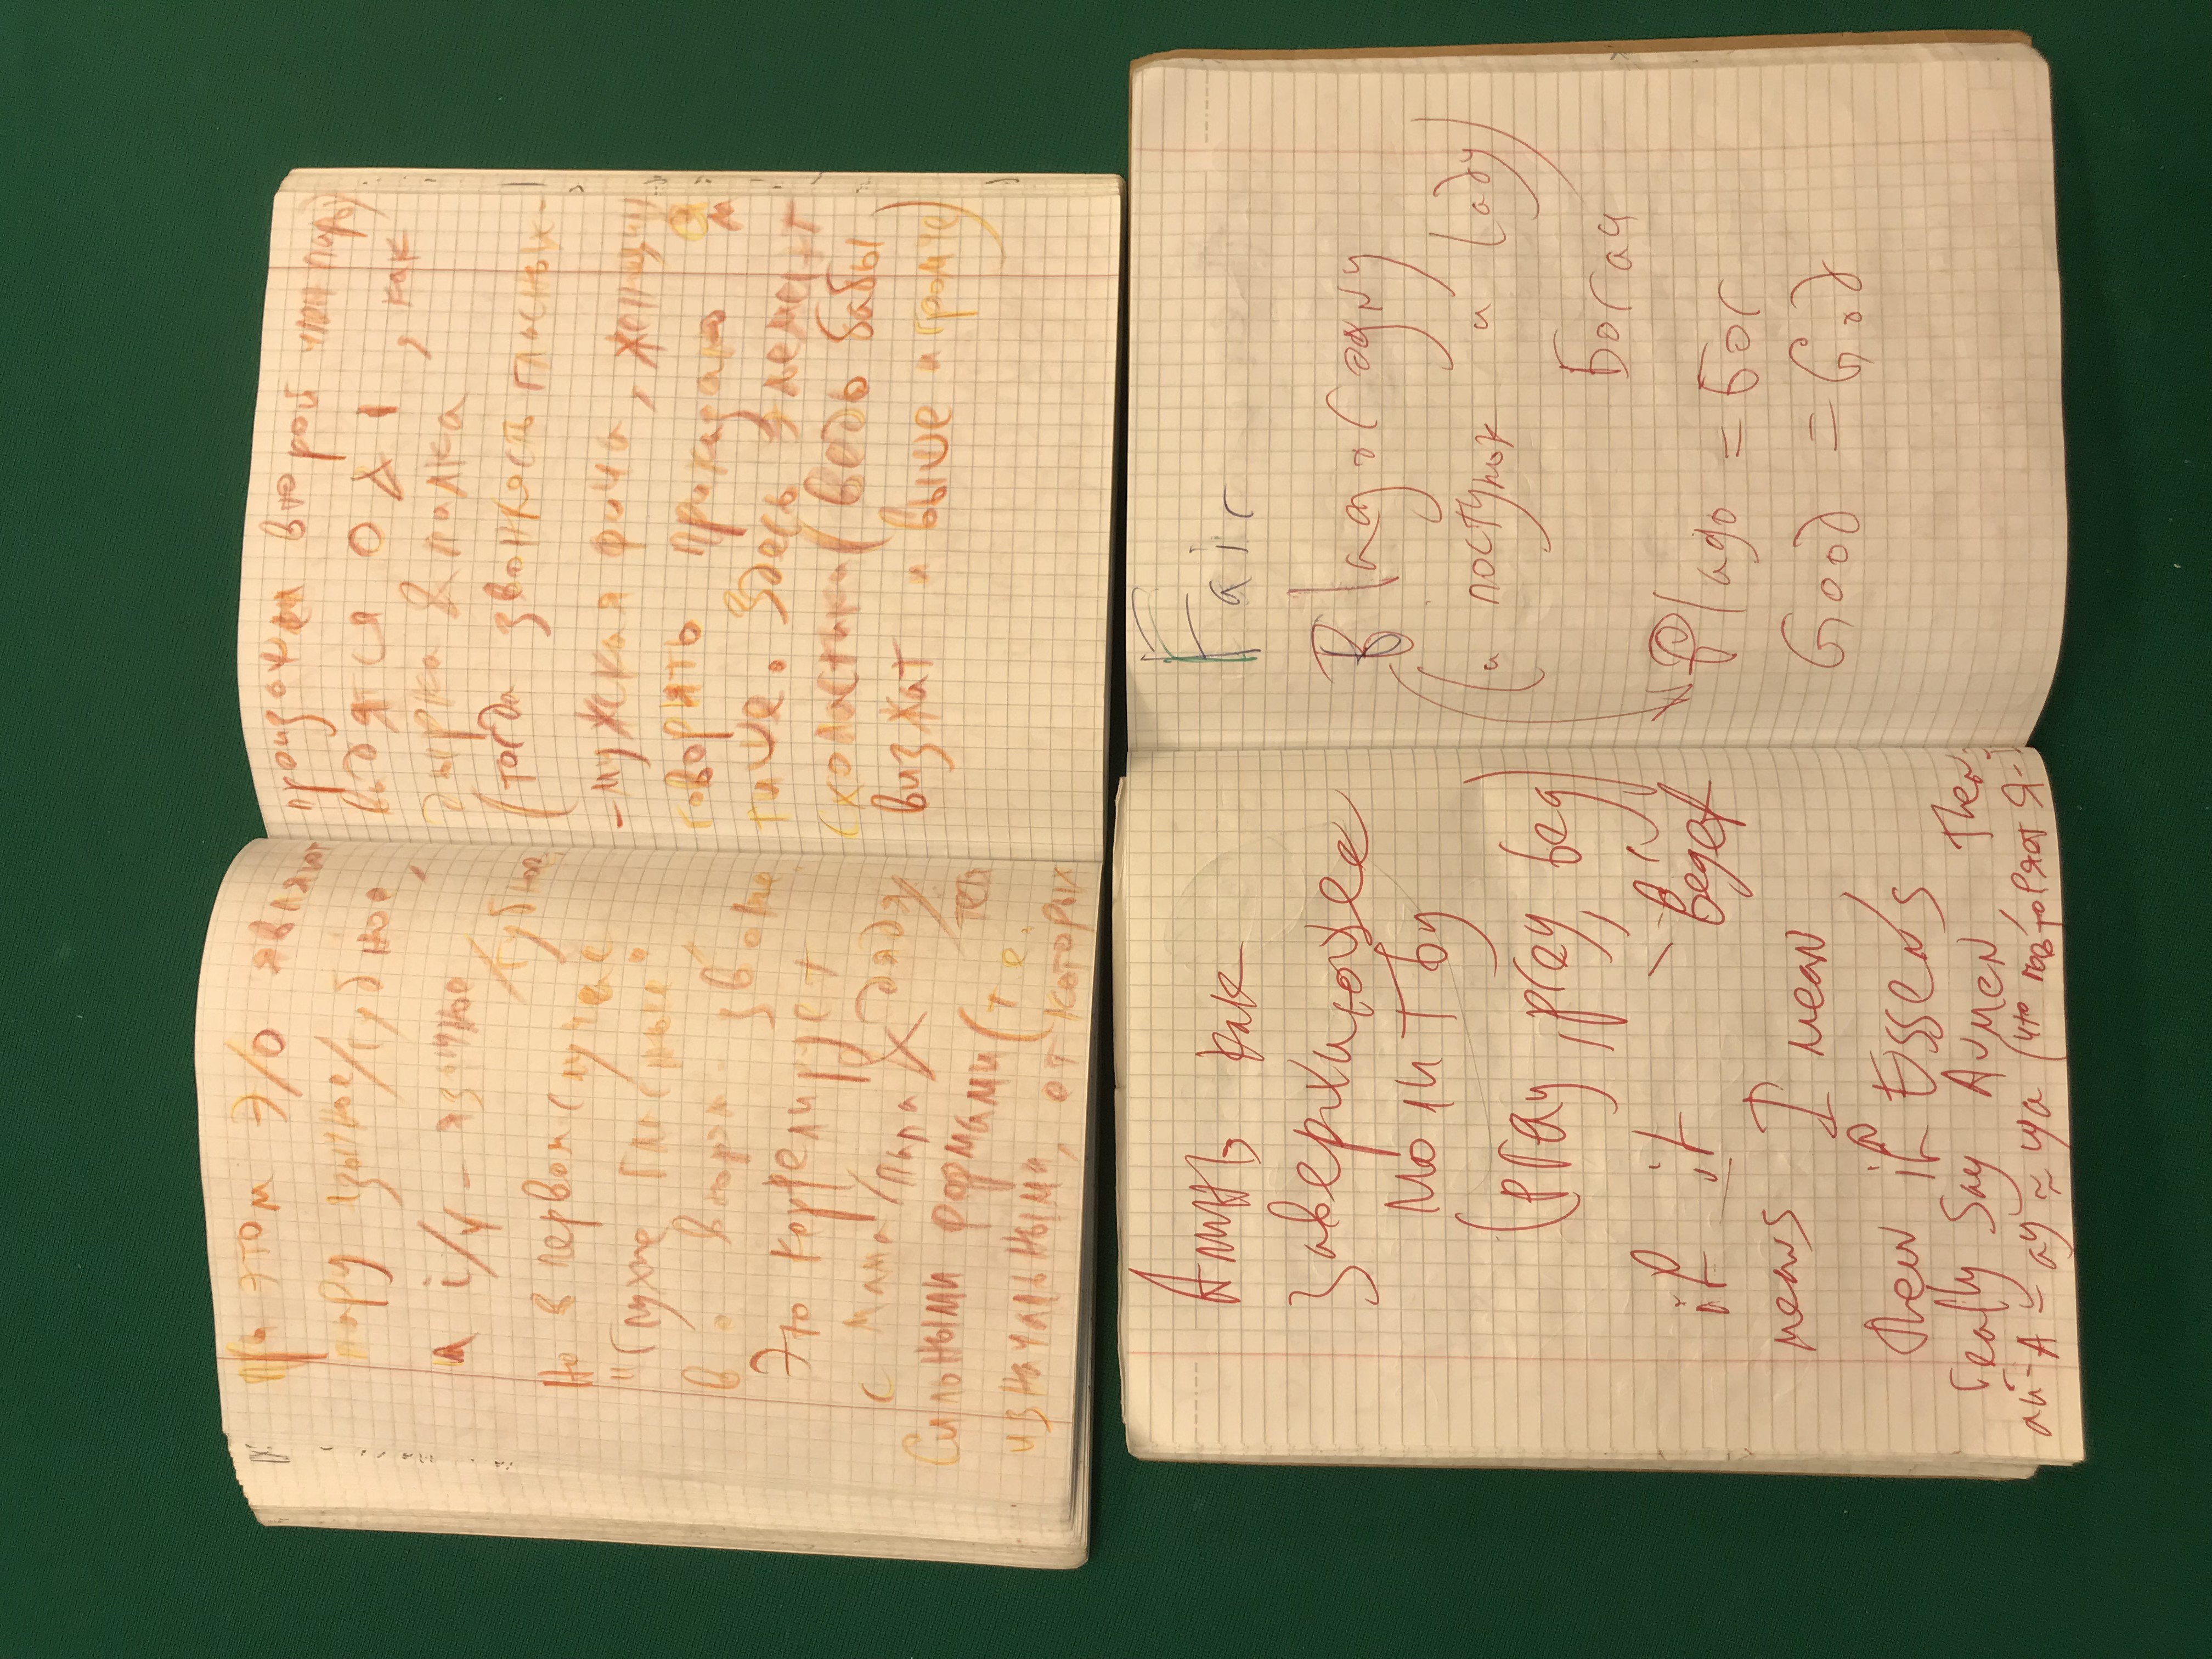 при этом Э/О являют
пару язычное/губное,
и i/y - язычное
/губное.
Но в первом случае
"глухие гласные",
во втором звонкие
Это коррелирует
с мама/папа & дядя/
тётя
Сильными формами (т.е.
изначальными, от которых
произошёл второй член пары)
видятся О & 1, как
дырка & палка
(тогда звонкость гласных-
-мужская фича, женщинам
говорить приказано
тише. Здесь элемент
схоластики (ведь бабы
визжат и выше и громче)
Аминь как
заверхиющее
молитву
(pray, prey, beg)
if it beget
means I mean
then if Essens
really say Aumen, then
ай-А = ay ≈ уа (что повторяет Я-
Fair
Blagorodny
(и поступок и lady)
Богач
Plago = Бог
Good = God